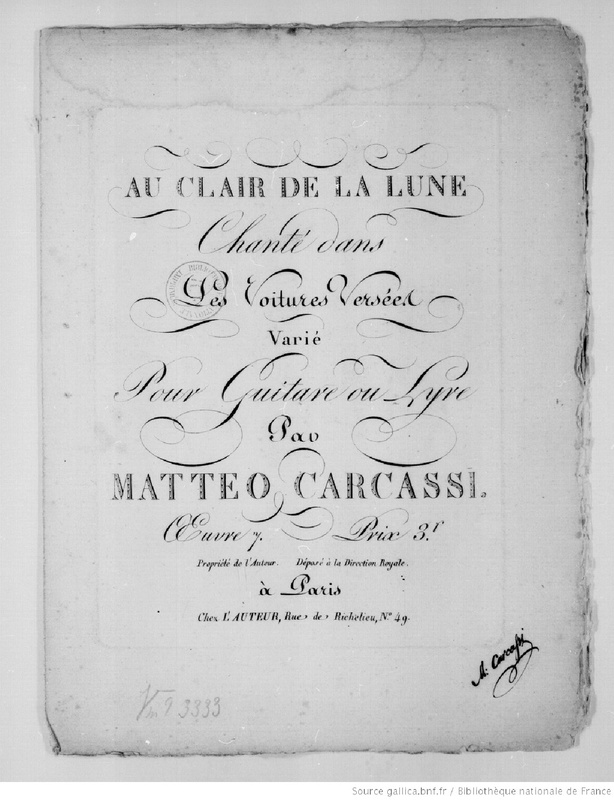 AU CLAIR DE LA LUNE
Chanté dans
Les Voitures Versées
Varié
Pour Guitare ou Lyre
Par
MATTEO CARCASSI.
Œuvre 7. Prix 3.f
Propriété de l'Auteur. Déposé à la Direction Royale.
à Paris
Chez L'AUTEUR, Rue de Richelieu, N.o 49.
M: Carcassi
Vm 9 3333
Source gallica.bnf.fr / Bibliothèque nationale de France